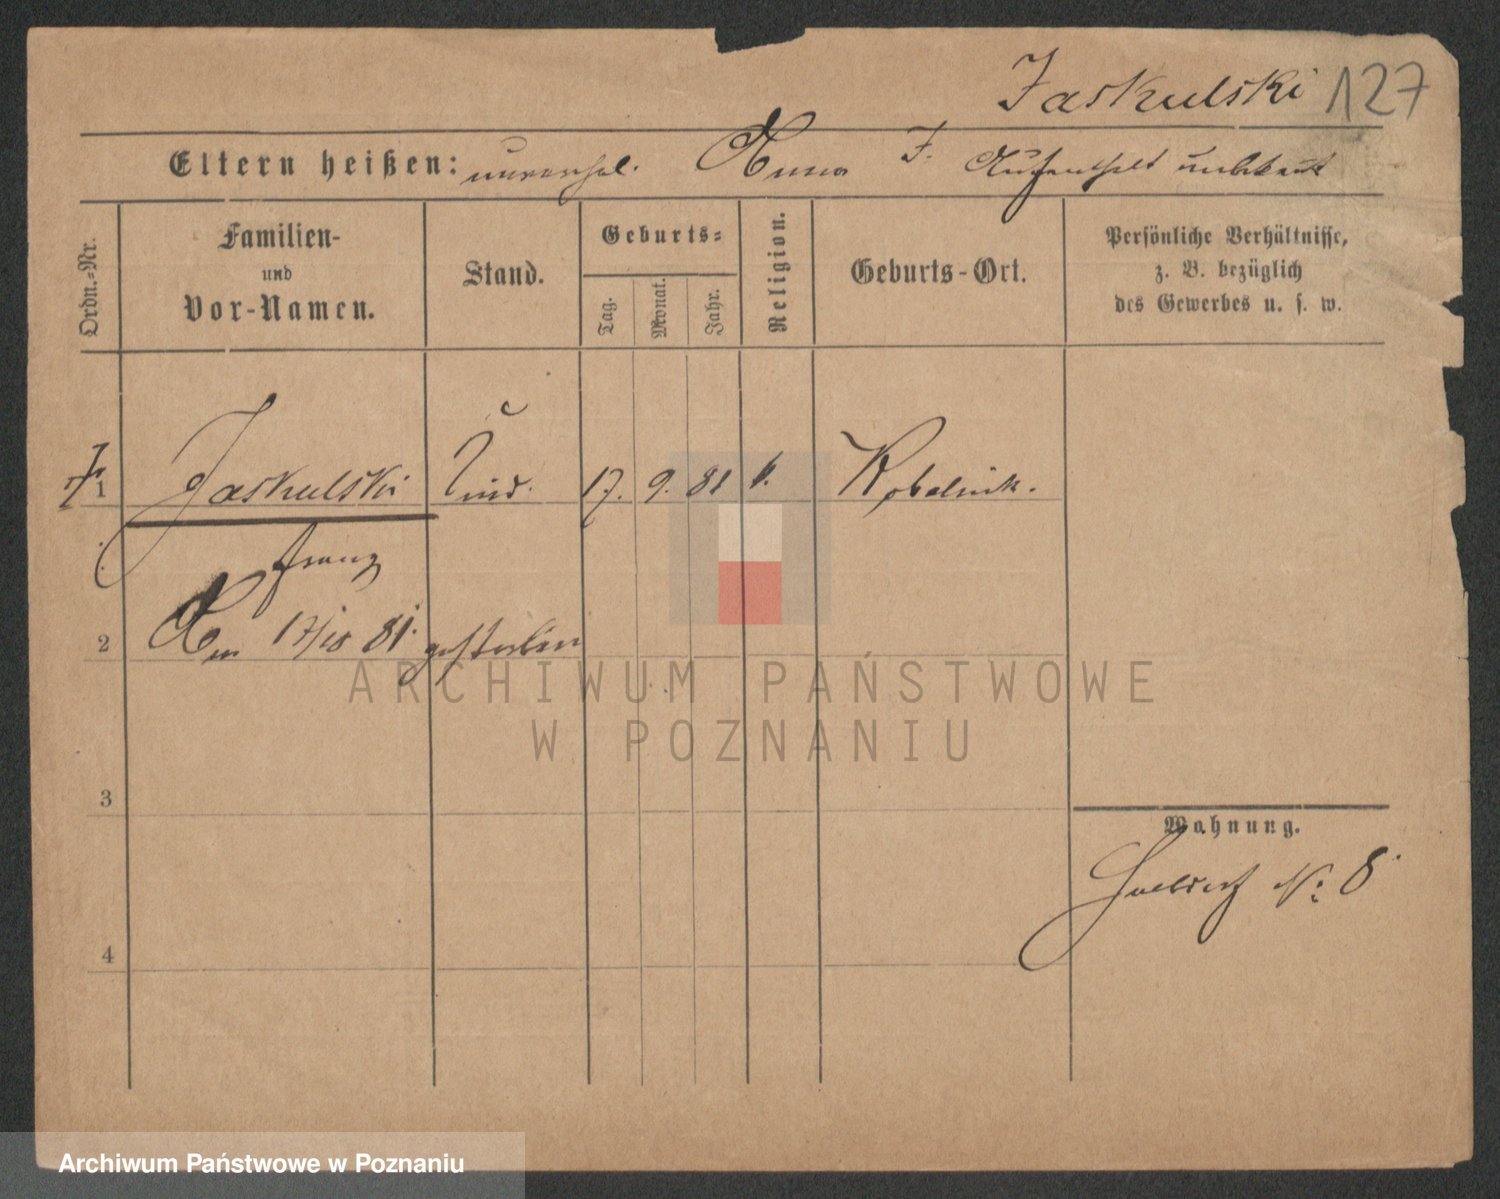 Jaskulski 127
Eltern heißen: unverehel. Anna J. Aufenthalt unbekannt
Ordn.-Nr.
Familien-
und
Vor-Namen.
Stand.
Geburts-
Tag.
Monat.
Jahr.
Religion.
Geburts-Ort.
Persönliche Verhältnisse,
z. B. bezüglich
des Gewerbes u. s. w.
1 Jaskulski Kind. 17. 9. 81 k. Kobelnik.
Franz
2 Am 17/10 81. gestorben
ARCHIWUM PAŃSTWOWE
W POZNANIU
3
Wohnung.
No. 8
4
Archiwum Państwowe w Poznaniu